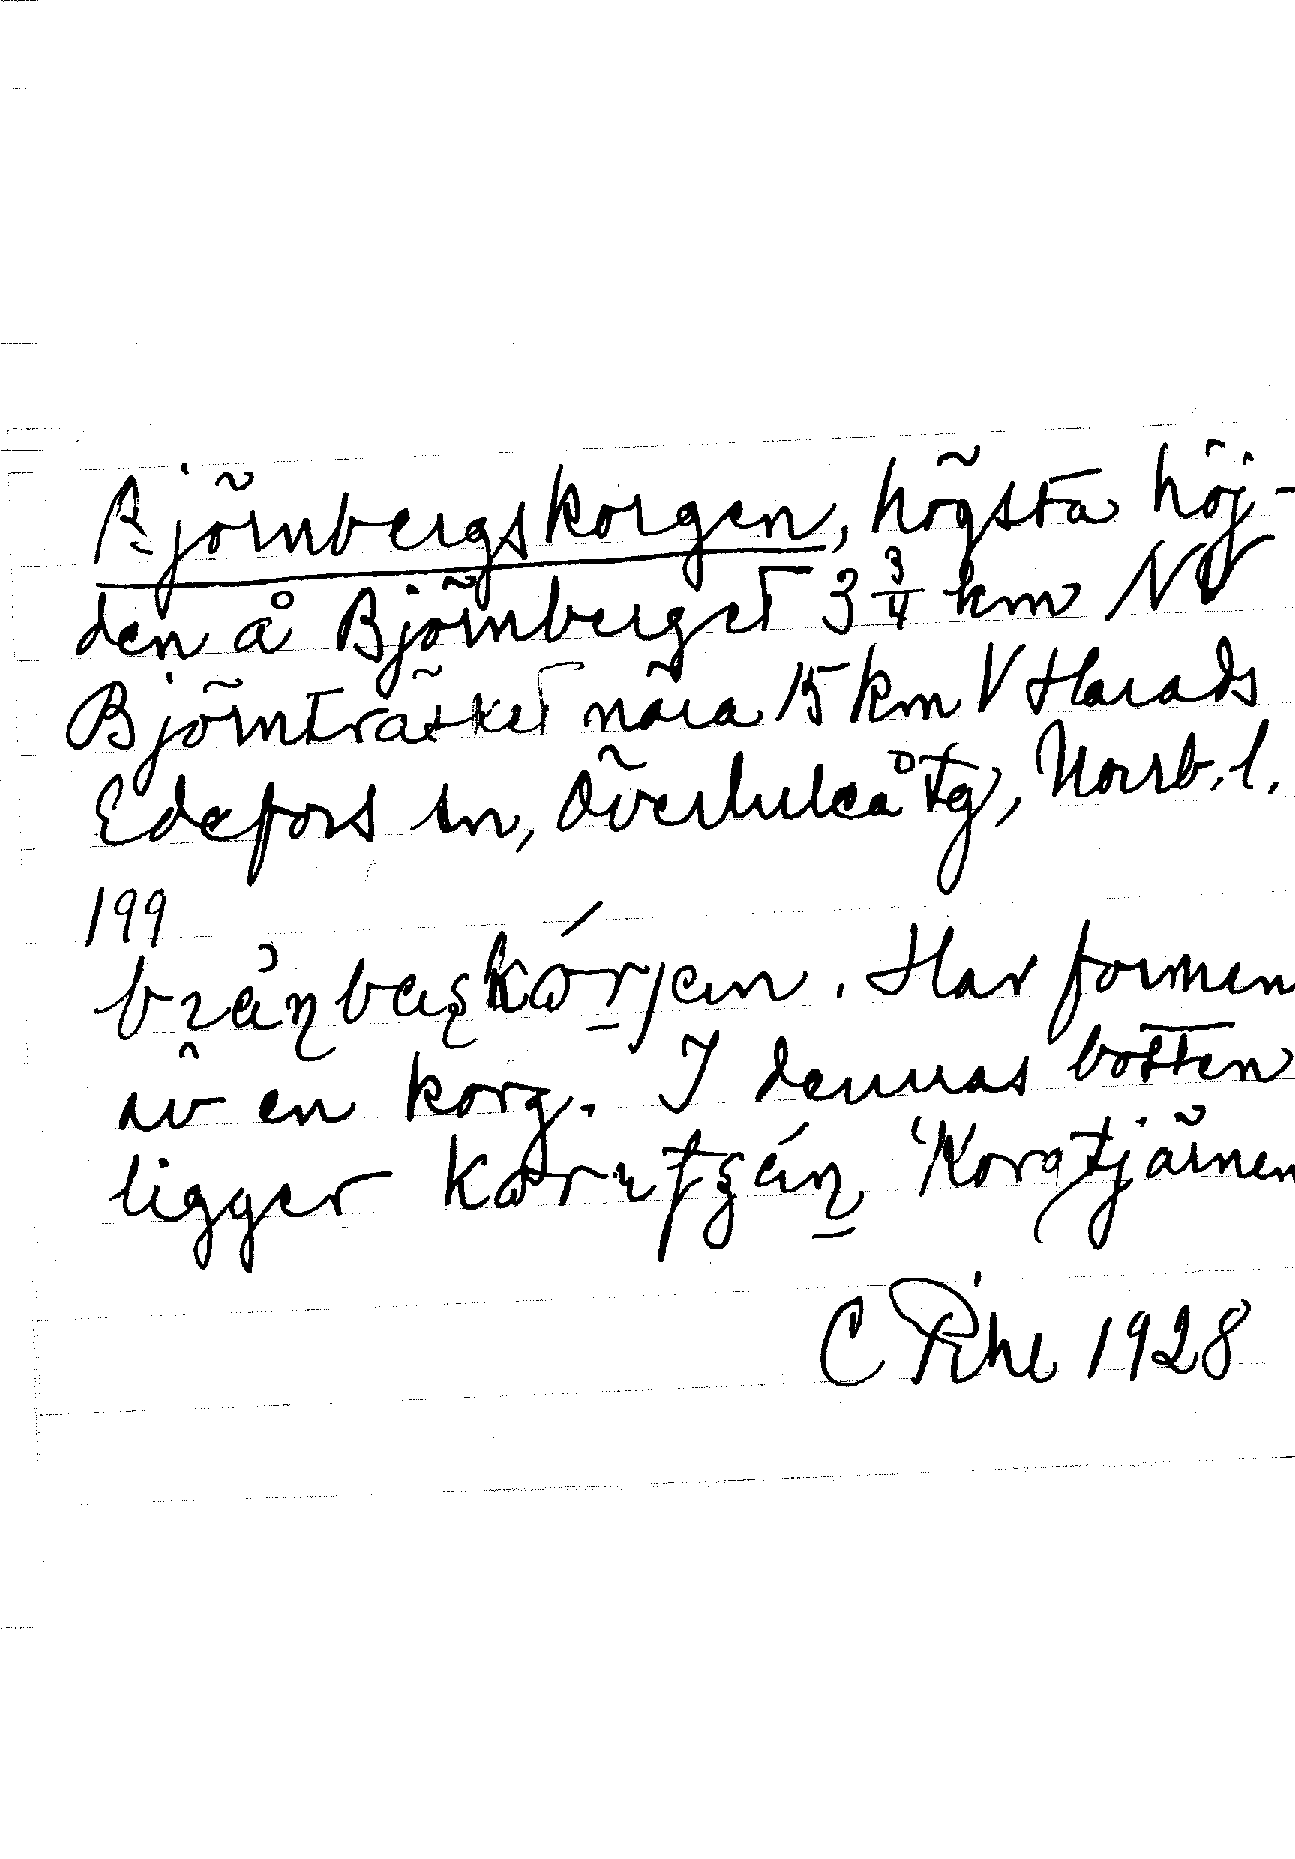 Björnbergskorgen, högsta höj-
den å Björnberget 3 3/4 km NV
Björnträsket nära 15 km V Harads
Edefors sn, Överluleå tg, Norrb. l.
199
Har formen
av en korg. I dennas botten
ligger 'Korgtjärnen
C Pihl 1928